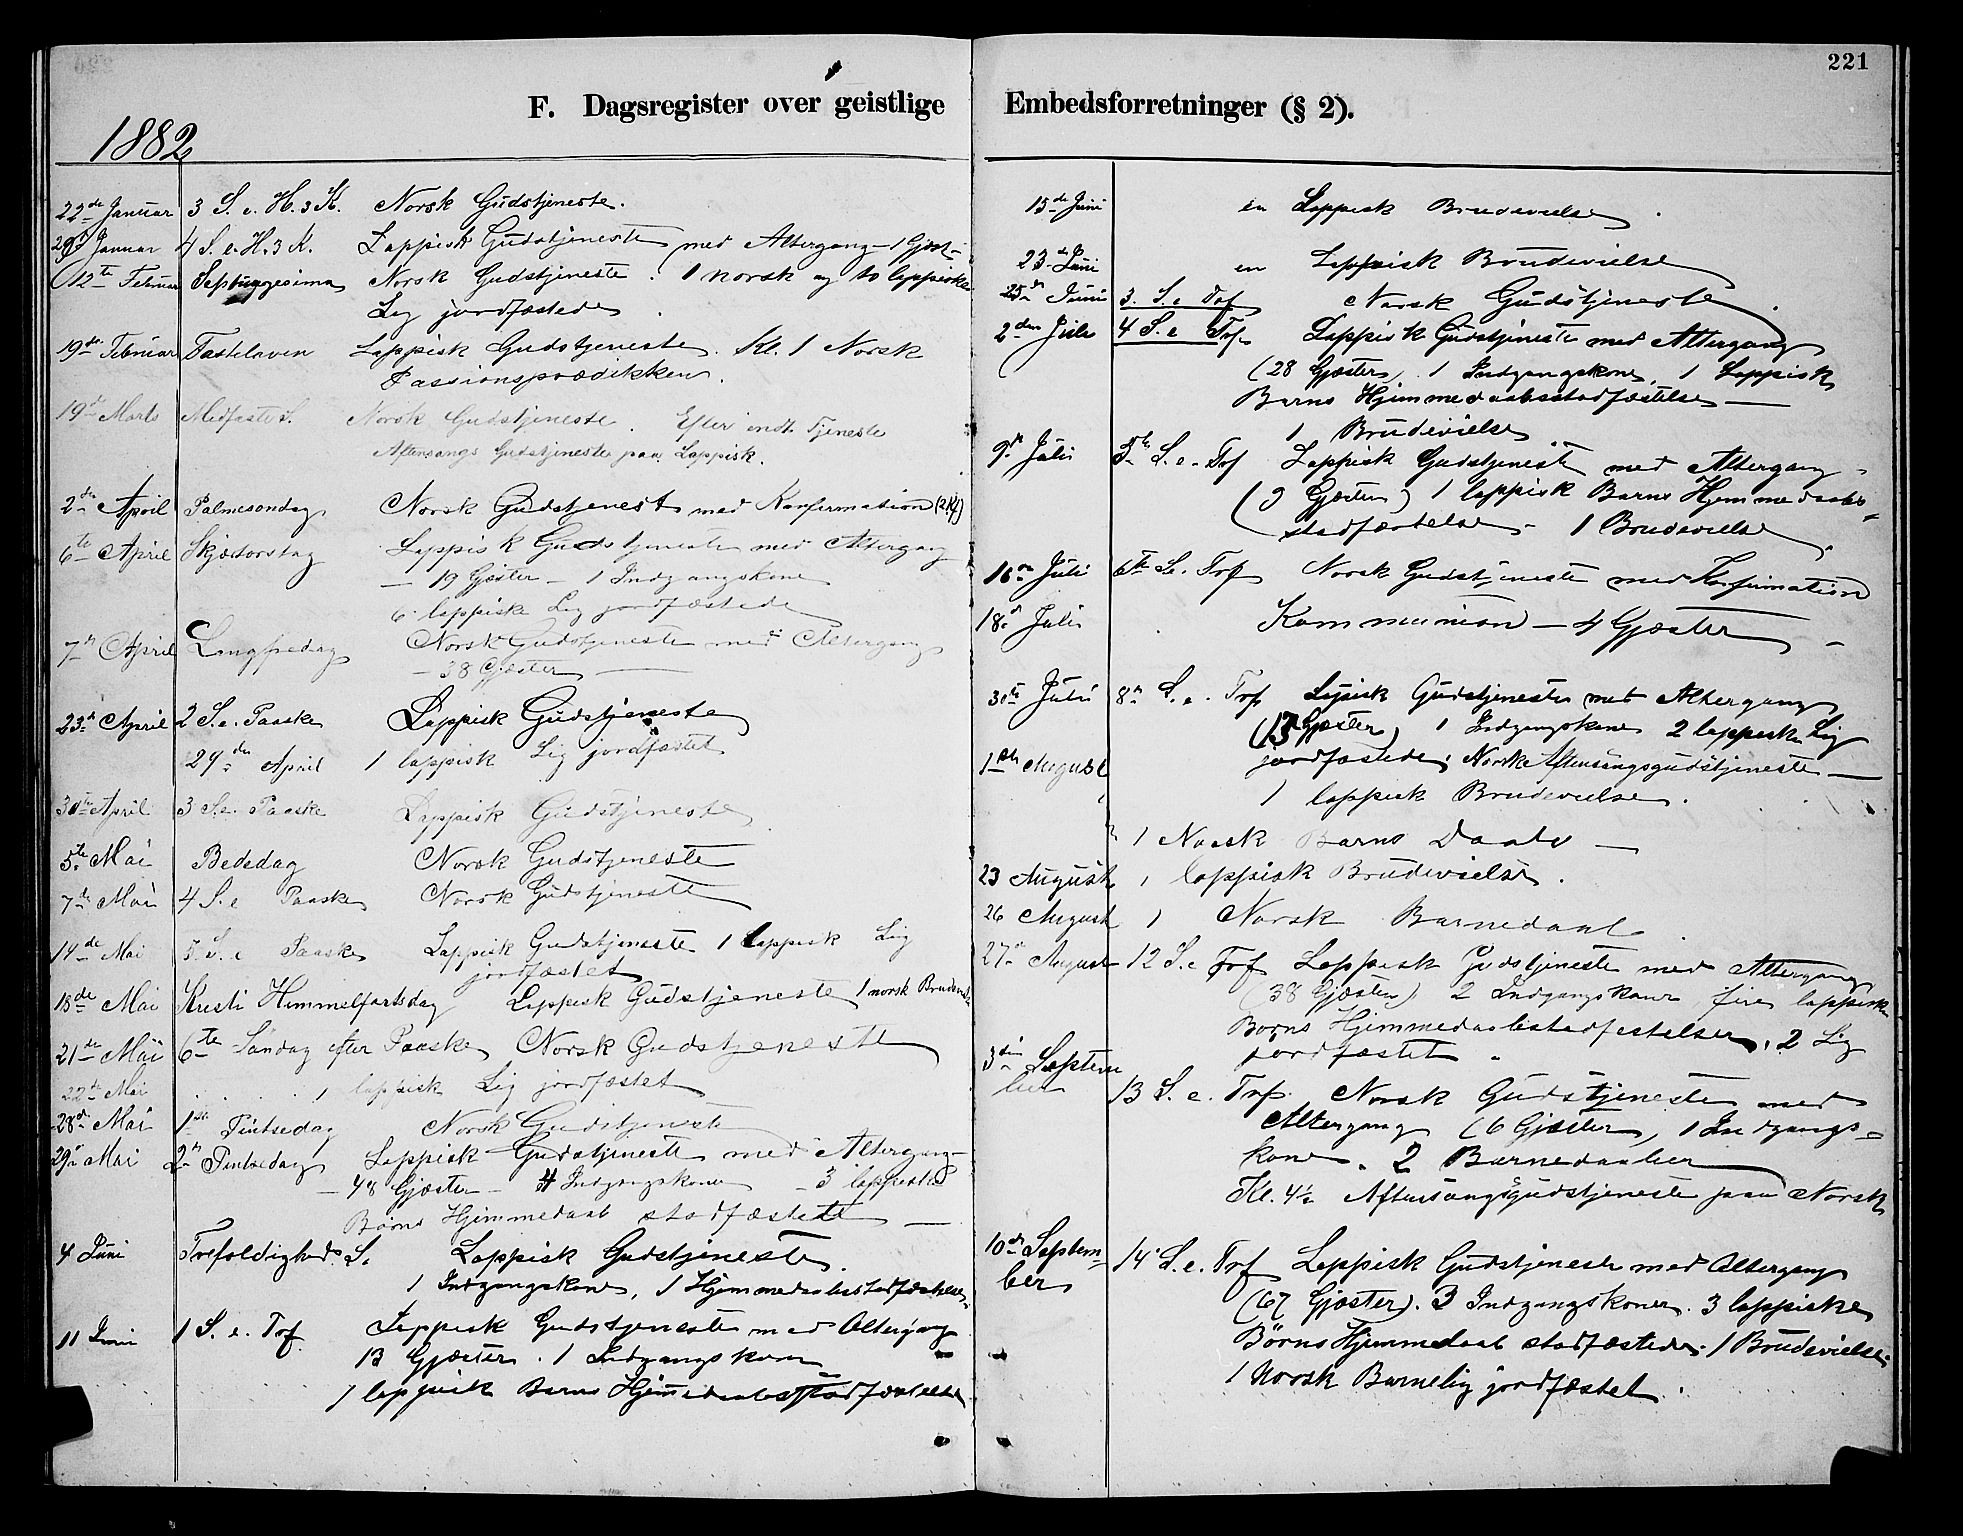 221
F. Dagsregister over geistlige Embedsforretninger (§ 2).
1882
22de Januar 3 S. e. H. 3 K. Norsk Gudstjeneste.
29de Januar 4 S. e. H. 3 K. Lappisk Gudstjeneste med Altergang - 1 Gjest -
12te Februar Septuagesima Norsk Gudstjeneste. 1 norsk og to lappiske
Lig jordfæstede.
19de Februar Fastelaven Lappisk Gudstjeneste. Kl. 1 Norsk
Passionsprædikken.
19de Marts Midfaste S. Norsk Gudstjeneste. Efter endt Tjeneste
Aftensangs Gudstjeneste paa Lappisk.
2den April Palmesøndag Norsk Gudstjenest med Konfirmation (2 Kf)
6te April Skjærtorsdag Lappisk Gudstjeneste med Altergang
— 19 Gjester — 1 Indgangskone
6 lappiske Lig jordfæstede
7de April Langfredag Norsk Gudstjeneste med Altergang
— 38 Gjæster —
23de April 2 S. e. Paaske Lappisk Gudstjeneste
29de April 1 lappisk Lig jordfæstet
30te April 3 S. e. Paaske Lappisk Gudstjeneste
5te Mai Bededag Norsk Gudstjeneste
7de Mai 4 S. e Paaske Norsk Gudstjeneste
14de Mai 5. S. e Paaske Lappisk Gudstjeneste 1 lappisk Lig
jordfæstet
18de Mai Kristi Himmelfartsdag Lappisk Gudstjeneste 1 norsk Brudevielse
21de Mai 6te Søndag efter Paaske Norsk Gudstjeneste
22de Mai 1 lappisk Lig jordfæstet
28de Mai 1ste Pintsedag Norsk Gudstjeneste
29de Mai 2den Pintsedag Lappisk Gudstjeneste med Altergang —
— 48 Gjæster — 4 Indgangskoner — 3 lappiske
Børns Hjemmedaab stadfæstede —
4 Juni Trefoldigheds S. Lappisk Gudstjeneste.
1 Indgangskone, 1 Hjemmedaabsstadfæstelse.
11 Juni 1 S. e. Tref. Lappisk Gudstjeneste med Altergang
13 Gjæster. 1 Indgangskone
1 lappisk Barns Hjemmedaabsstadfæstelse
15de Juni en Lappisk Brudevielse.
23de Juni en Lappisk Brudevielse
25de Juni 3. S. e Tref Norsk Gudstjeneste.
2den Juli 4 S. e Tref. Lappisk Gudstjeneste med Altergang
(28 Gjæster), 1 Indgangskone, 1 Lappisk
Barns Hjemmedaabsstadfæstelse —
1 Brudevielse.
9de Juli 5te S. e. Tref Lappisk Gudstjeneste med Altergang -
(9 Gjæster) 1 lappisk Barns Hjemmedaabs-
stadfæstelse - 1 Brudevielse.
16de Juli 6te S. e. Tref Norsk Gudstjeneste med Konfirmation
18de Juli Kommunion — 4 Gjæster —
30te Juli 8de S. e. Tref Lappisk Gudstjeneste med Altergang
(13 Gjæster) 1 Indgangskone 2 lappiske Lig
jordfæstede; Norsk Aftensangsgudstjeneste —
1ste August 1 lappisk Brudevielse.
" 1 Norsk Barns Daab —
23 August 1 lappisk Brudevielse.
26 August 1 Norsk Barnedaab.
27de August 12 S. e Tref Lappisk Gudstjeneste med Altergang
(38 Gjæster) 2 Indgangskoner, fire lappiske
Børns Hjemmedaabsstadfestelser, 2 Lig
jordfæstet.
3die Septem
ber 13 S. e. Tref. Norsk Gudstjeneste med
Altergang (6 Gjæster), 1 Indgangs-
kone. 2 Barnedaaber
Kl. 4½ Aftensangsgudstjeneste paa Norsk
10de Septem-
ber 14 S. e. Tref Lappisk Gudstjeneste med Altergang
(67 Gjæster). 3 Indgangskoner. 3 lappiske
Børns Hjemmedaab stadfæstede. 1 Brudevielse.
1 Norsk Barnelig jordfæstet.